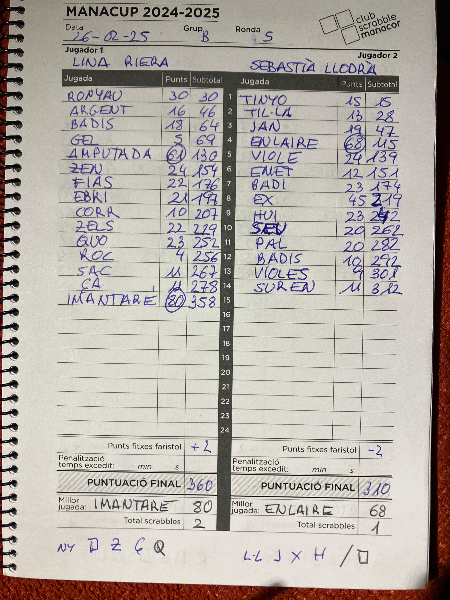 MANACUP 2024-2025
club scrabble manacor
Data 26-02-25 Grup B Ronda 5
Jugador 1 Jugador 2
LINA RIERA SEBASTIÀ LLODRÀ
Jugada Punts Subtotal Jugada Punts Subtotal
RONYAU 30 30 1 TINYO 15 15
ARGENT 16 46 2 TIL·LA 13 28
BADIS 18 64 3 JAN 19 47
GEL 5 69 4 ENLAIRE 68 115
AMPUTADA 61 130 5 VIOLE 24 139
ZEN 24 154 6 ENET 12 151
FIAS 22 176 7 BADI 23 174
EBRI 21 197 8 EX 45 219
CORR 10 207 9 HUI 23 242
ZELS 22 229 10 SEU 20 262
QUO 23 252 11 PAL 20 282
ROC 4 256 12 BADIS 10 292
SAC 11 267 13 VIOLES 9 301
ÇA 11 278 14 SUREN 11 312
IMANTARE 80 358 15
16
17
18
19
20
21
22
23
24
Punts fitxes faristol +2 Punts fitxes faristol -2
Penalització temps excedit: min s Penalització temps excedit: min s
PUNTUACIÓ FINAL 360 PUNTUACIÓ FINAL 310
Millor jugada: IMANTARE 80 Millor jugada: ENLAIRE 68
Total scrabbles 2 Total scrabbles 1
NY Z Ç Q L·L J X H